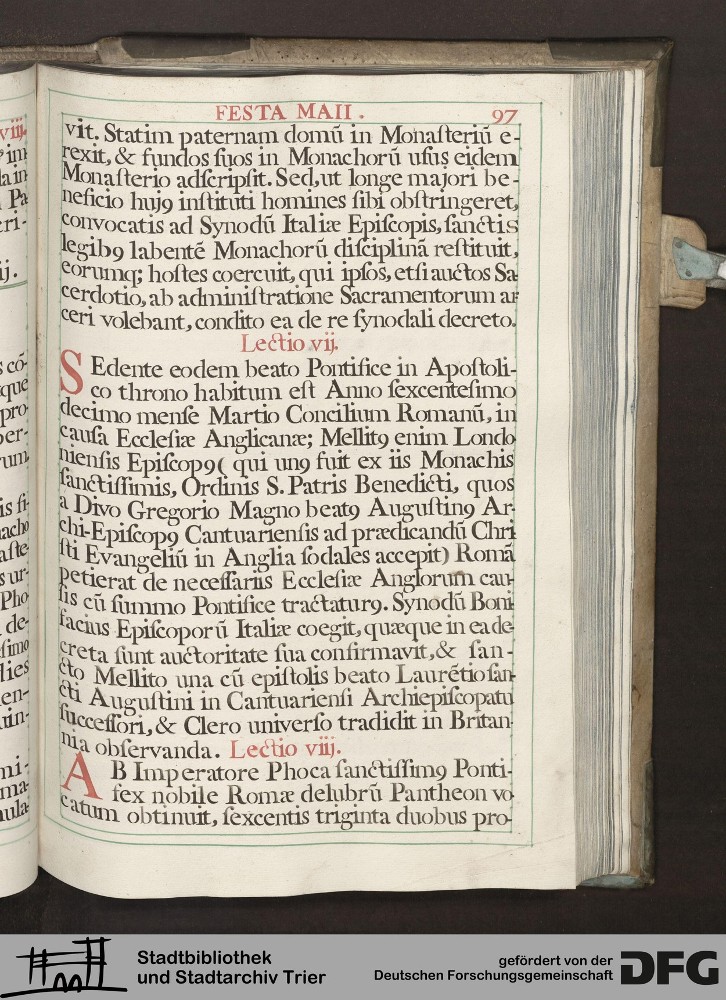 FESTA MAII. 97
vit. Statim paternam domũ in Monaſteriũ e-
rexit, & fundos ſuos in Monachorũ uſus eidem
Monaſterio adſcripſit. Sed, ut longe majori be-
neficio hujꝰ inſtituti homines ſibi obſtringeret,
convocatis ad Synodũ Italiæ Epiſcopis, ſanctis
legibꝰ labentẽ Monachorũ diſciplinã reſtituit,
eorumq; hoſtes coercuit, qui ipſos, etſi auctos Sa-
cerdotio, ab adminiſtratione Sacramentorum ar-
ceri volebant, condito ea de re ſynodali decreto.
Lectio vij.
SEdente eodem beato Pontifice in Apoſtoli-
co throno habitum eſt Anno ſexcenteſimo
decimo menſe Martio Concilium Romanũ, in
cauſa Eccleſiæ Anglicanæ; Mellitꝰ enim Londo-
nienſis Epiſcopꝰ ( qui unꝰ fuit ex iis Monachis
ſanctiſſimis, Ordinis S. Patris Benedicti, quos
a Divo Gregorio Magno beatꝰ Auguſtinꝰ Ar-
chi-Epiſcopꝰ Cantuarienſis ad prædicandũ Chri-
ſti Evangeliũ in Anglia ſodales accepit) Romã
petierat de neceſſariis Eccleſiæ Anglorum cau-
ſis cũ ſummo Pontifice tractaturꝰ. Synodũ Boni-
facius Epiſcoporũ Italiæ coegit, quæque in ea de-
creta ſunt auctoritate ſua confirmavit, & ſan-
cto Mellito una cũ epiſtolis beato Laurẽtio ſan-
cti Auguſtini in Cantuarienſi Archiepiſcopatu
ſucceſſori, & Clero univerſo tradidit in Britan-
nia obſervanda. Lectio viij.
AB Imperatore Phoca ſanctiſſimꝰ Ponti-
fex nobile Romæ delubrũ Pantheon vo-
catum obtinuit, ſexcentis triginta duobus pro-
Stadtbibliothek
und Stadtarchiv Trier
gefördert von der
Deutschen Forschungsgemeinschaft
DFG